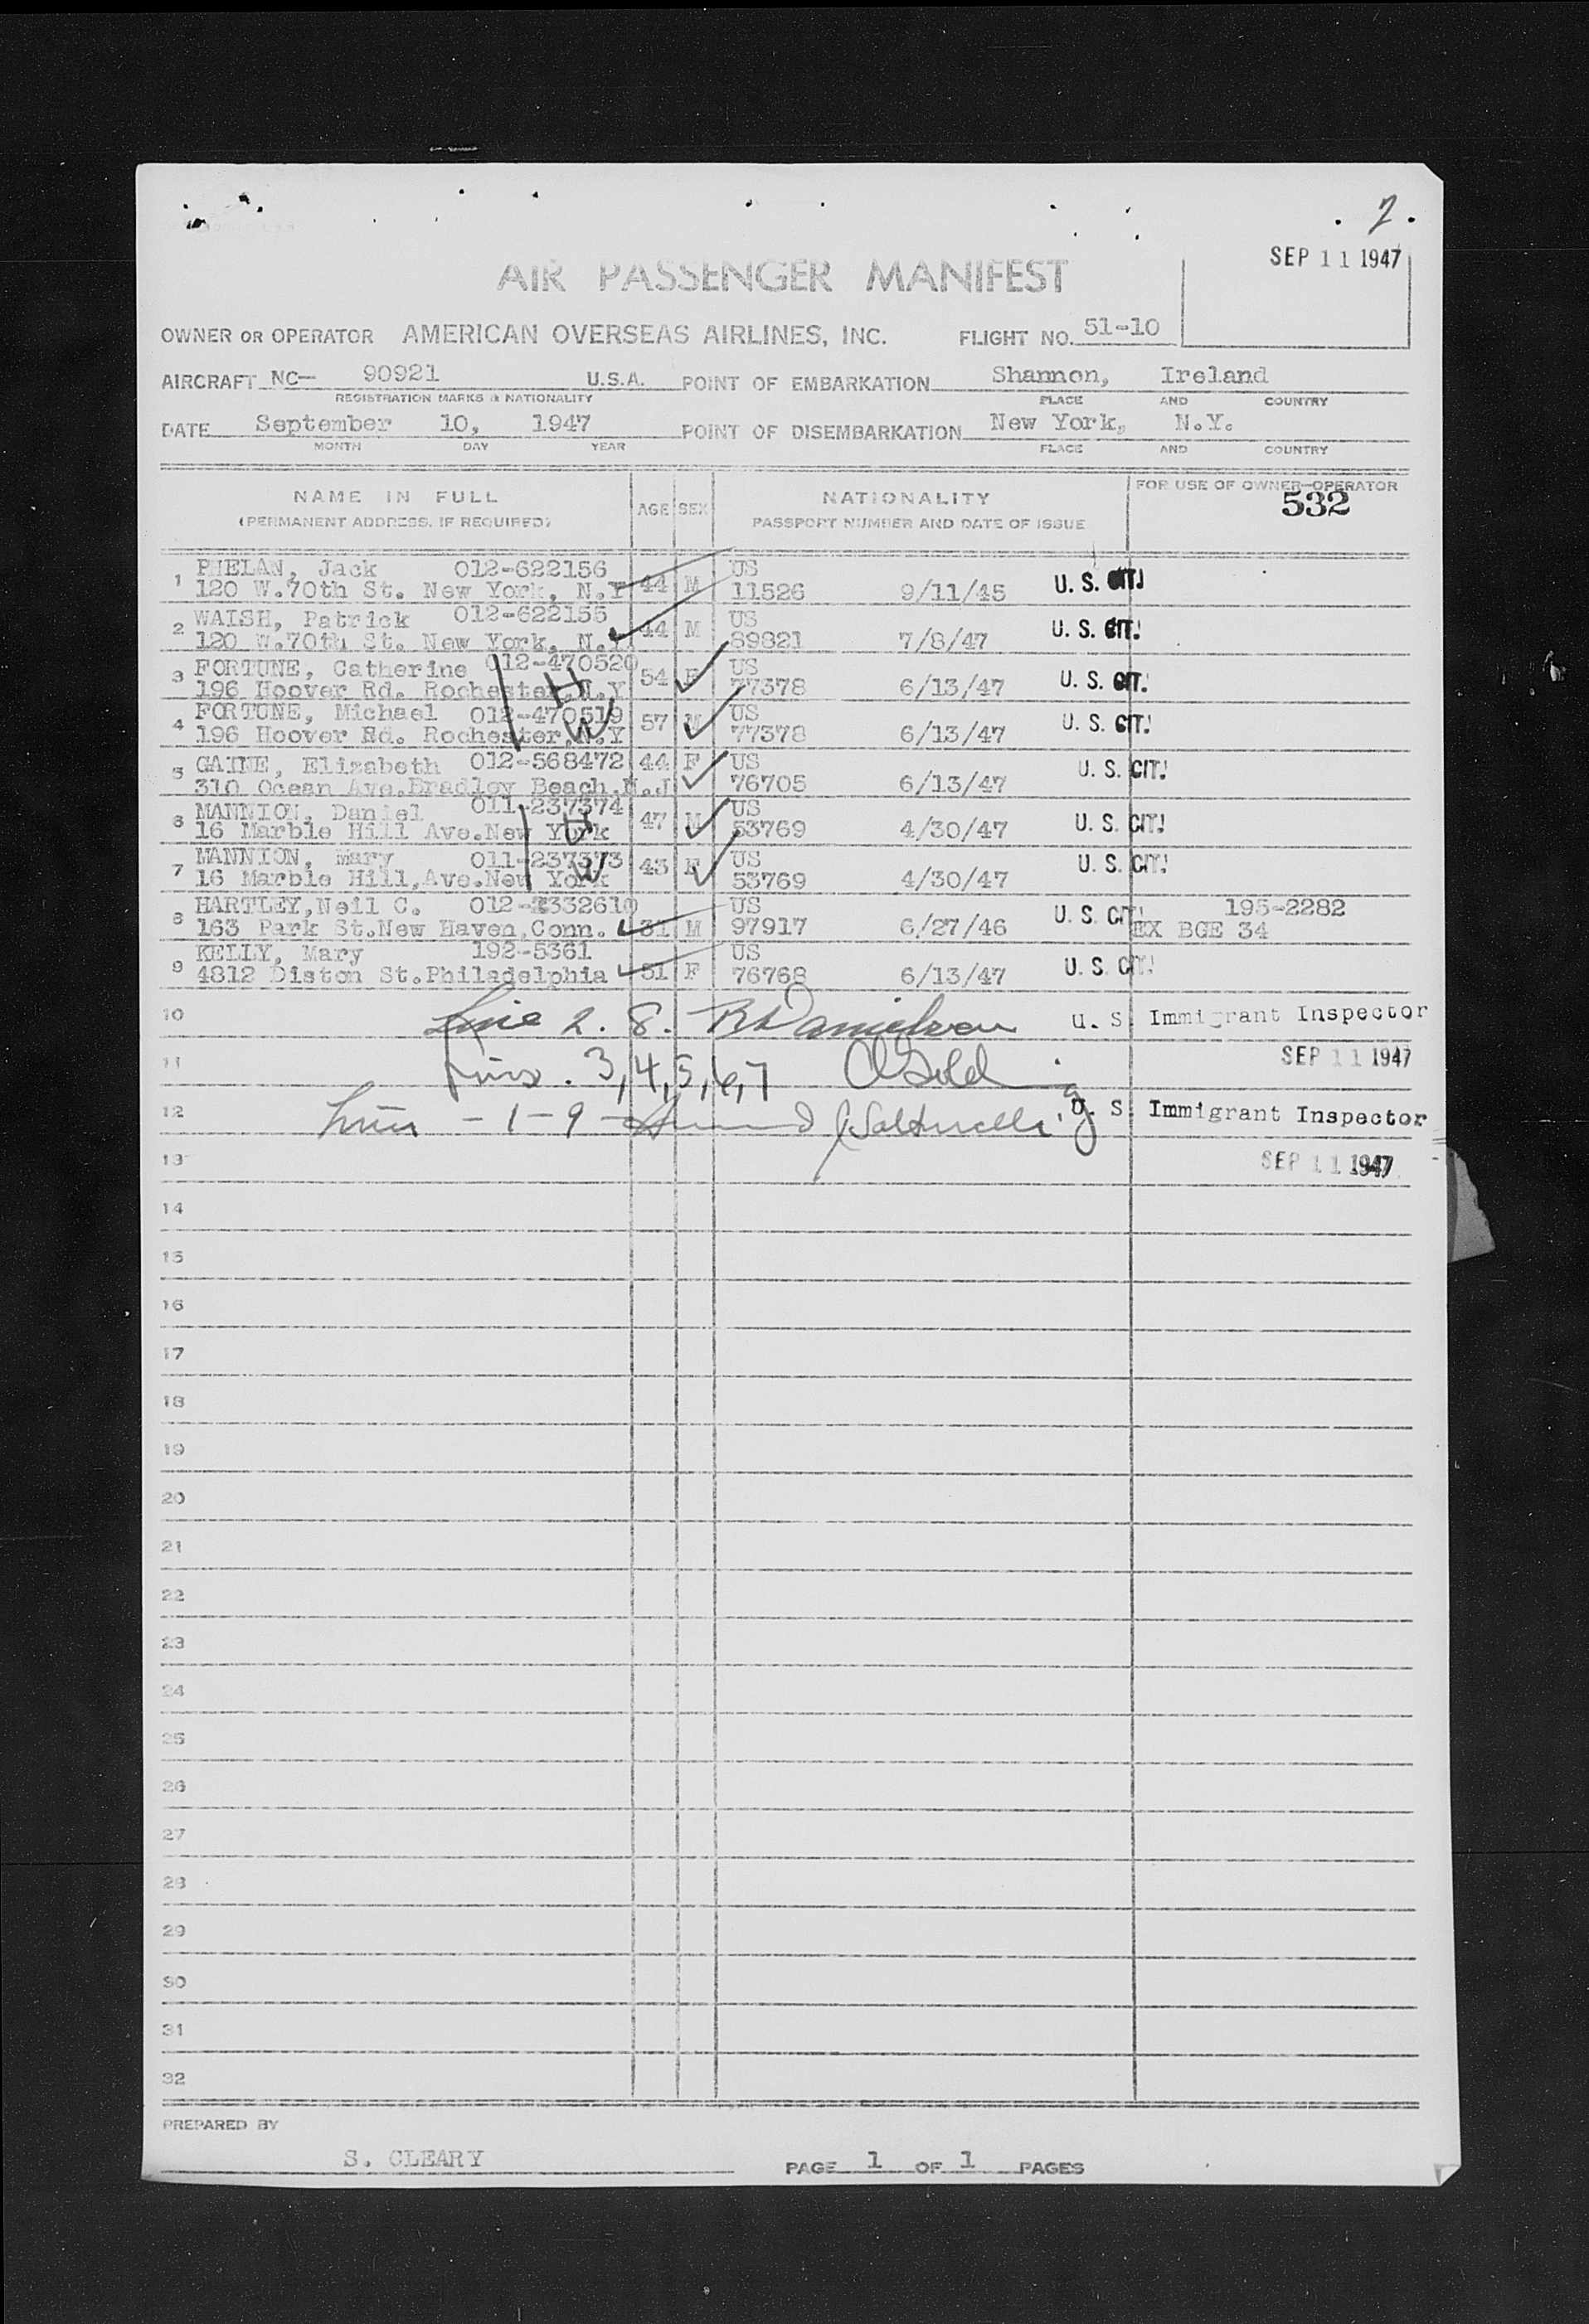 7.
SEP 11 1947
AIR PASSENGER MANIFEST
OWNER OR OPERATOR AMERICAN OVERSEAS AIRLINES, INC. FLIGHT NO. 51-10
AIRCRAFT NC— 90921 U.S.A. POINT OF EMBARKATION Shannon, Ireland
REGISTRATION MARKS & NATIONALITY PLACE AND COUNTRY
DATE September 10, 1947 POINT OF DISEMBARKATION New York, N.Y.
MONTH DAY YEAR PLACE AND COUNTRY
NAME IN FULL
(PERMANENT ADDRESS, IF REQUIRED)
AGE SEX
NATIONALITY
PASSPORT NUMBER AND DATE OF ISSUE
FOR USE OF OWNER-OPERATOR
532
1 PHELAN, Jack 012-622156 44 M US
120 W.70th St. New York, N.Y 11526 9/11/45 U. S. CIT.
2 WALSH, Patrick 012-622155 44 M US
120 W.70th St. New York, N.Y. 89821 7/8/47 U. S. CIT.
3 FORTUNE, Catherine 012-470520 54 F US
196 Hoover Rd. Rochester,N.Y 77378 6/13/47 U. S. CIT.
H
4 FORTUNE, Michael 012-470519 57 M US
196 Hoover Rd. Rochester,N.Y 77378 6/13/47 U. S. CIT.
W
5 GAINE, Elizabeth 012-568472 44 F US
310 Ocean Ave.Bradley Beach,N.J 76705 6/13/47 U. S. CIT.
6 MANNION, Daniel 011-237374 47 M US
16 Marble Hill Ave.New York 53769 4/30/47 U. S. CIT.
H
7 MANNION, Mary 011-237373 43 F US
16 Marble Hill,Ave.New York 53769 4/30/47 U. S. CIT.
W
8 HARTLEY,Neil C. 012-1332610 31 M US 195-2282
163 Park St.New Haven,Conn. 97917 6/27/46 U. S. CIT. EX BGE 34
9 KELLY, Mary 192-5361 51 F US
4812 Diston St.Philadelphia 76768 6/13/47 U. S. CIT.
10 Line 2. 8. U. S. Immigrant Inspector
11 Lines. 3,4,5,6,7 SEP 11 1947
12 Lines - 1 - 9 U. S. Immigrant Inspector
13 SEP 11 1947
14
15
16
17
18
19
20
21
22
23
24
25
26
27
28
29
30
31
32
PREPARED BY
S. CLEARY PAGE 1 OF 1 PAGES